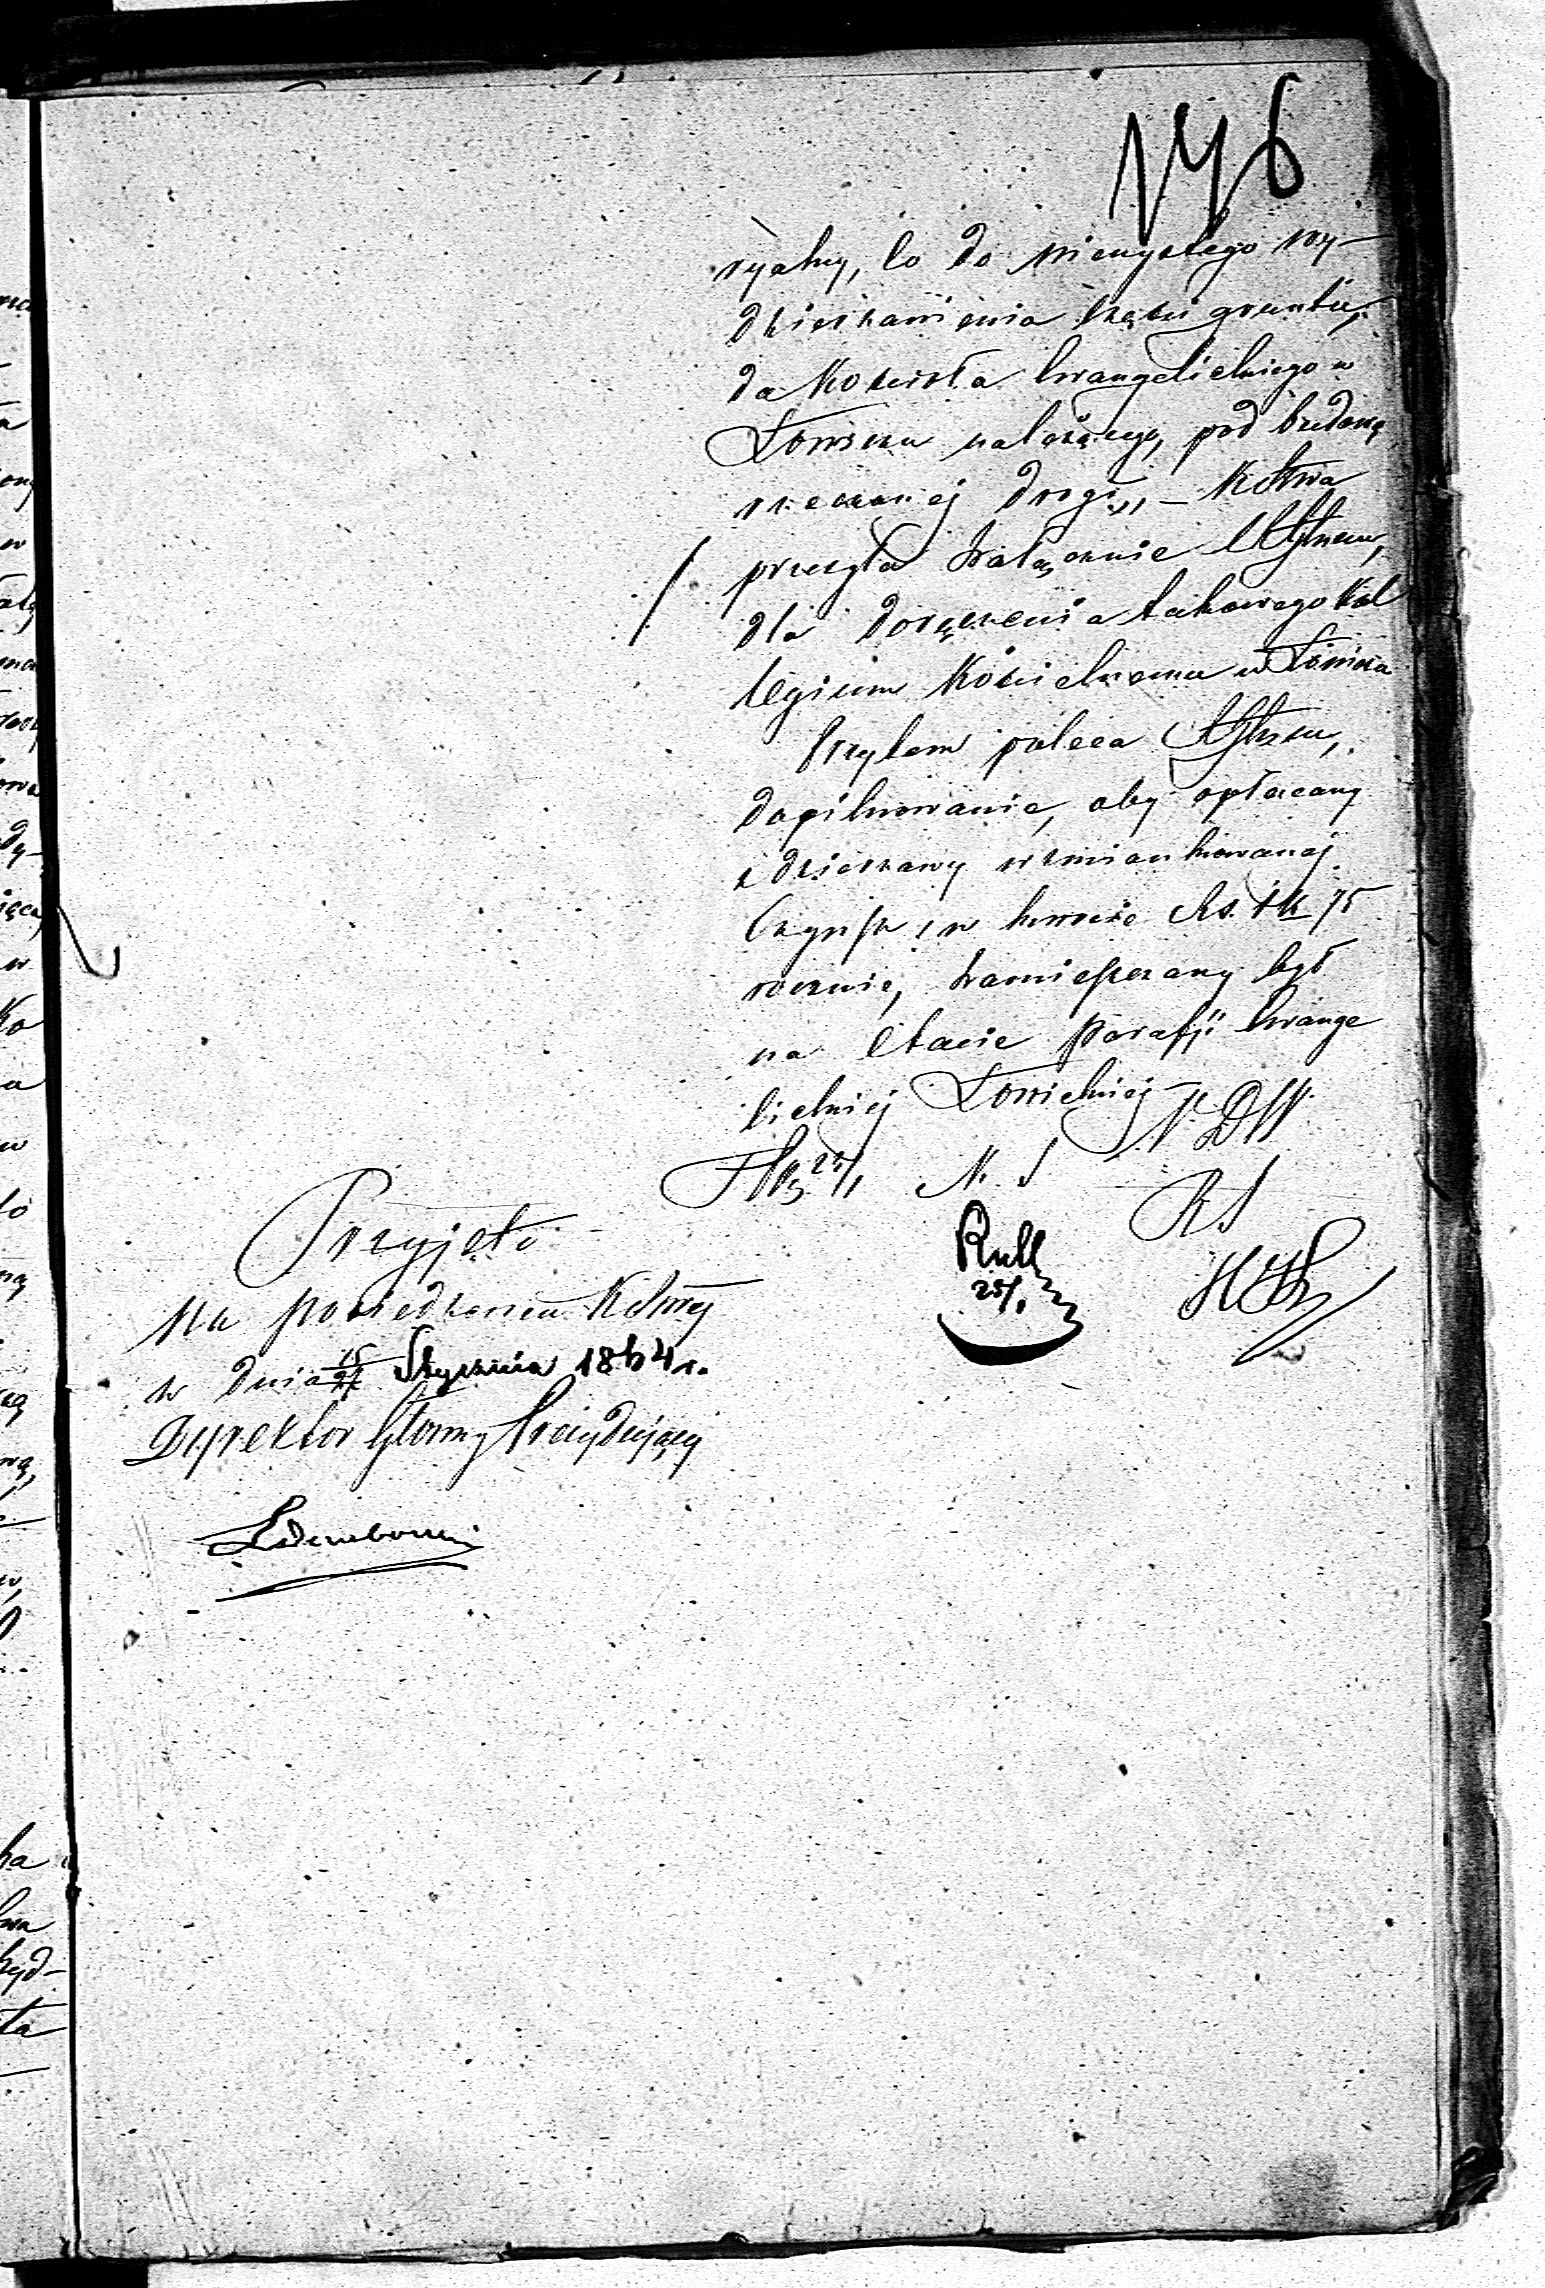 146
ryalny, co do wieczystego wy-
dzierżawienia części gruntu,
do Kościoła Ewangelickiego w
Łowiczu należącego, pod budowę
rzeczonej drogi„ –
przesyła w załączeniu
dla doręczenia takowego Kol
legium Kościelnemu w Łowiczu
Przytem poleca
dopilnowanie, aby opłacany
z dzierżawy wzmiankowanej
Czynsz, w kwocie Rs. 1 k 75
rocznie, zamieszczany był
na Etacie Parafji Ewange
lickiej Łowickiej
N. D W.
23/1 N. S
R S
25/1
Przyjęto
na posiedzeniu
w dniu Stycznia 1864 r.
Dyrektor Główny Prezydujący